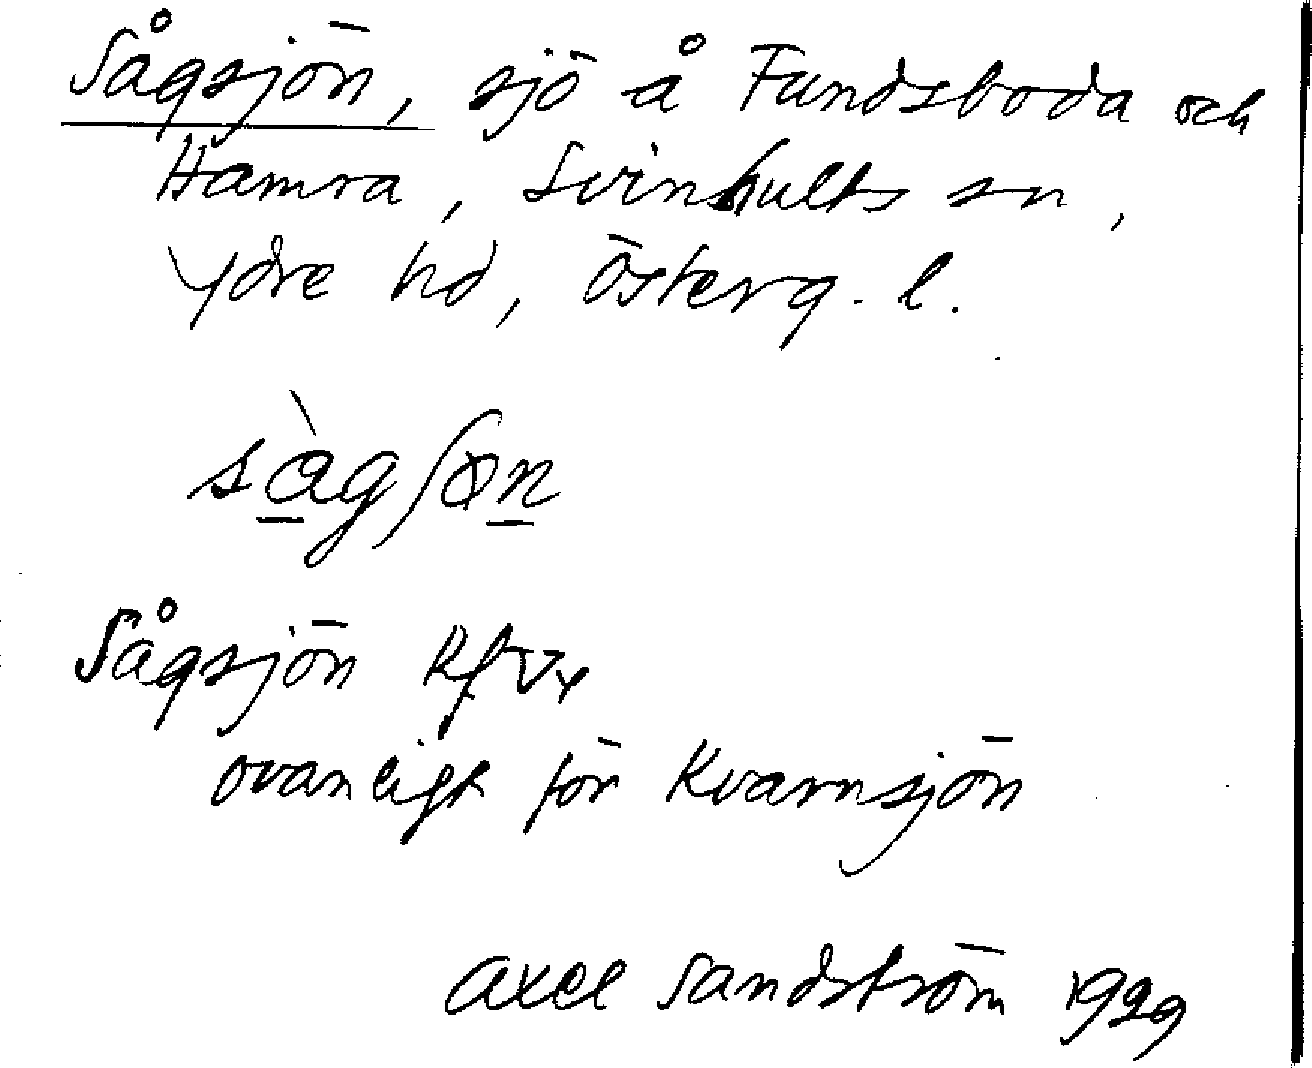 Sågsjön, sjö å Fundsboda och
Hamra, Svinhults sn,
Ydre hd, Österg. l.
sàgʃøn
Sågsjön
ovanligt för Kvarnsjön
Axel Sandström 1929